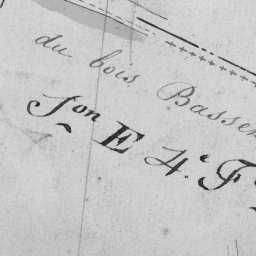 du bois Bassen
S.on E 4.e F